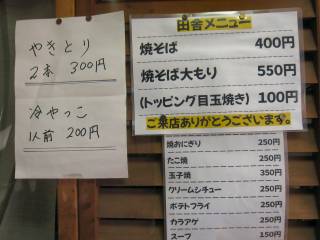 やきとり
2本 300円
冷やっこ
1人前 200円
田舎メニュー
焼そば 400円
焼そば大もり 550円
(トッピング目玉焼き) 100円
ご来店ありがとうございます。
焼おにぎり 250円
たこ焼 250円
玉子焼 350円
クリームシチュー 250円
ポテトフライ 250円
カラアゲ 250円
スープ 150円